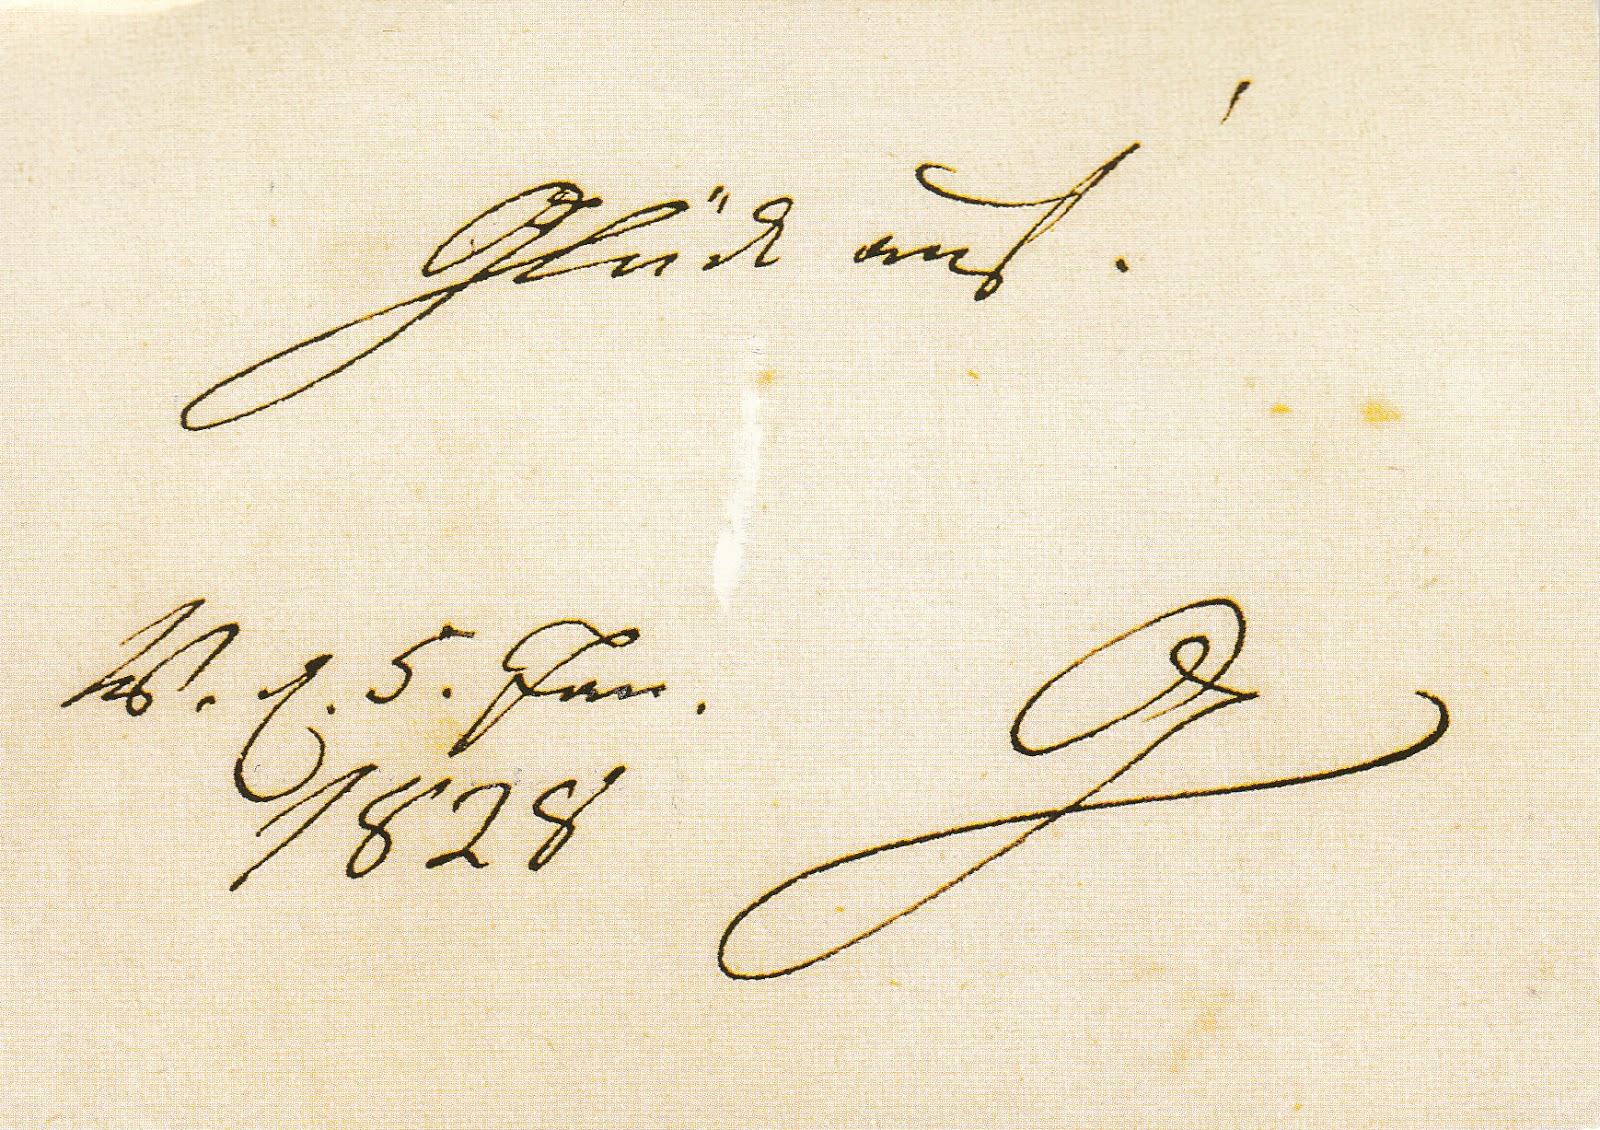 Glück auf!
W. d. 5. Jan.
1828
G